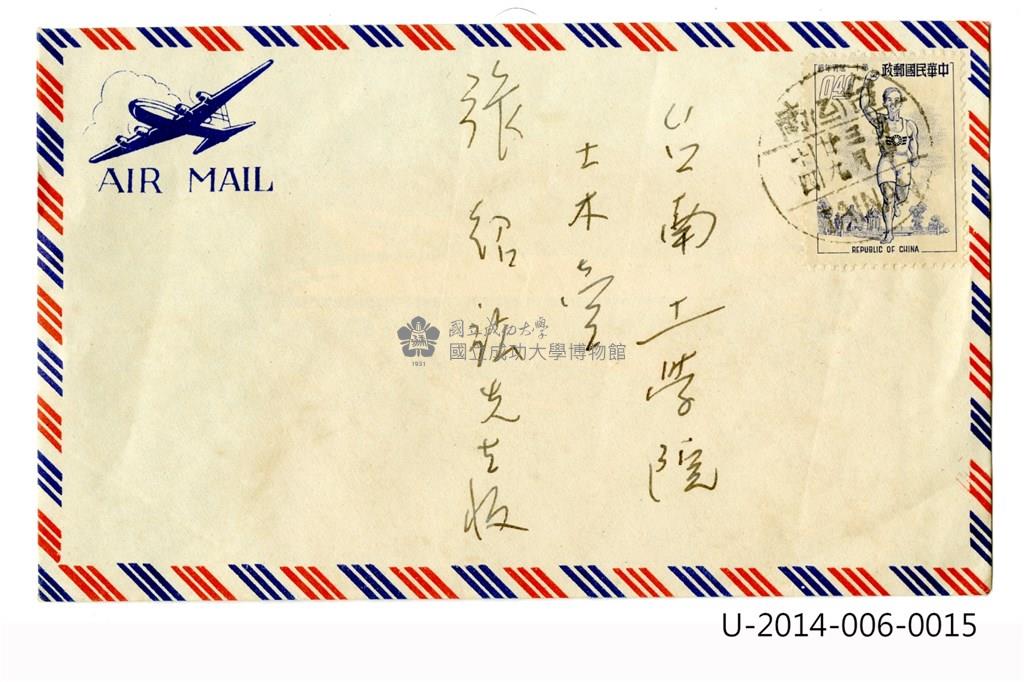 AIR MAIL
中華民國郵政
0.40
REPUBLIC OF CHINA
三月
廿九
台南工学院
土木
張紹
先生
國立成功大學
國立成功大學博物館
1931
U-2014-006-0015